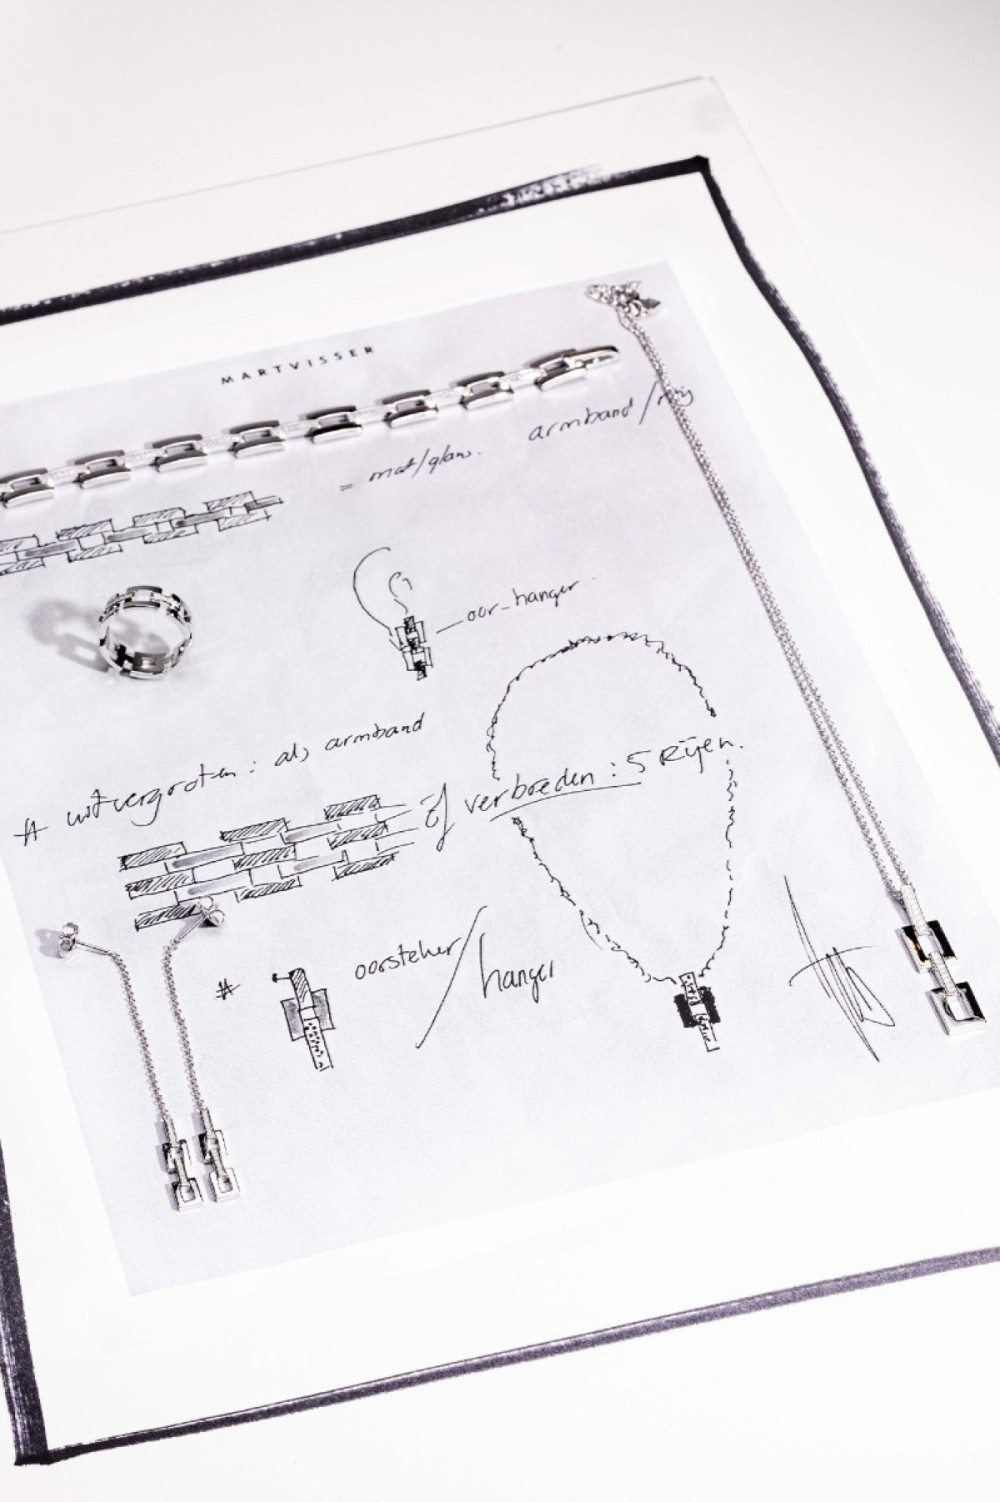 MARTVISSER
armband / ring
= mat/glans.
oor-hanger
# uitvergroten : als armband
of verbreden : 5 Rijen.
# oorsteker / hanger